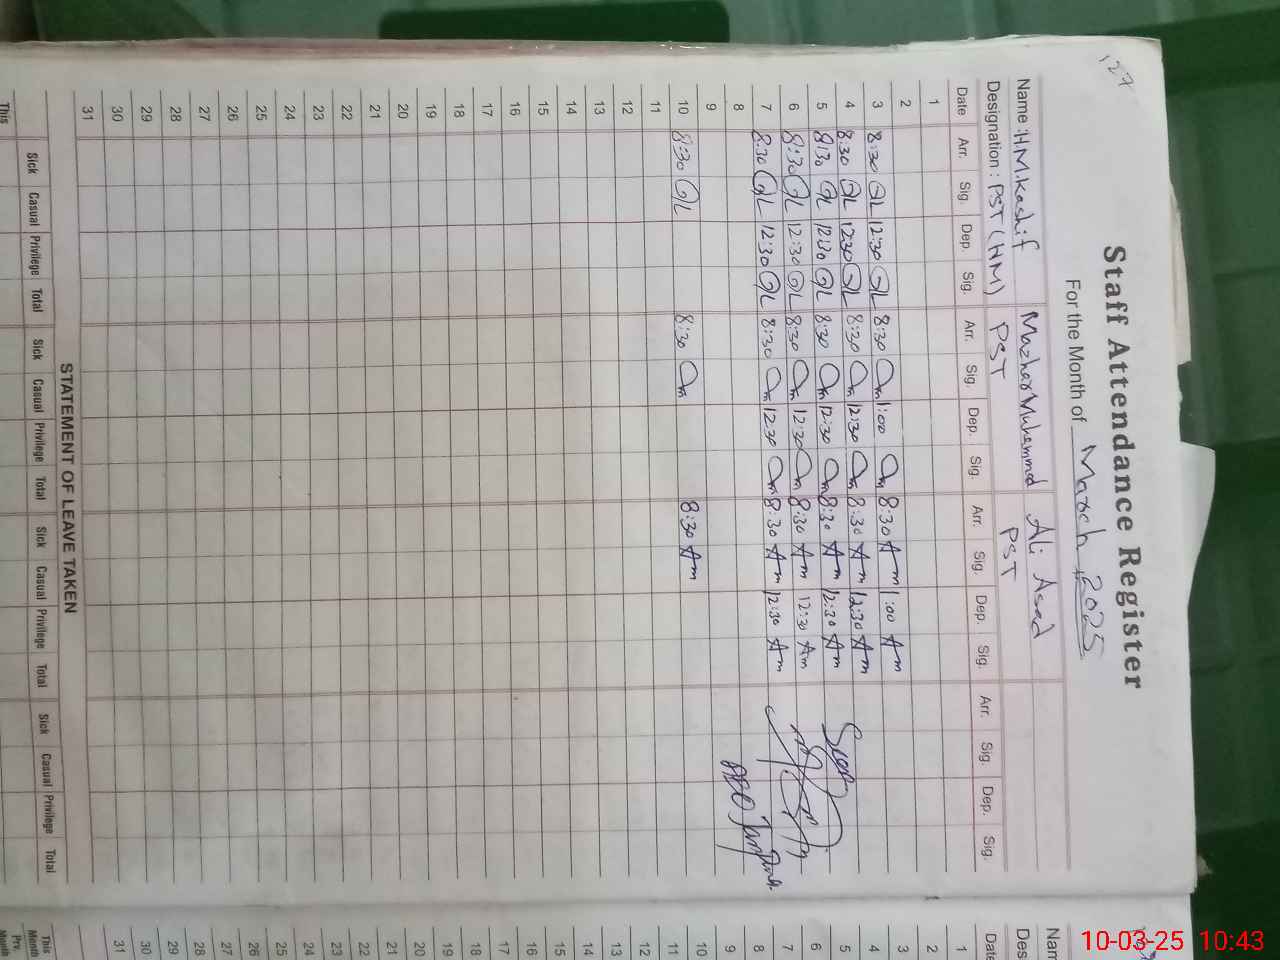 127
Staff Attendance Register
For the Month of March, 2025
Name : H.M.Kashif Mazhar Muhammad Ali Asad
Designation : PST (HM) PST PST
Date Arr. Sig. Dep. Sig. Arr. Sig. Dep. Sig. Arr. Sig. Dep. Sig. Arr. Sig. Dep. Sig.
1
2
3 8:30 12:30 8:30 1:00 8:30 Am 1:00 Am
4 8:30 12:30 8:30 12:30 8:30 Am 12:30 Am
5 8:30 12:30 8:30 12:30 8:30 Am 12:30 Am
6 8:30 12:30 8:30 12:30 8:30 Am 12:30 Am
7 8:30 12:30 8:30 12:30 8:30 Am 12:30 Am
8
9
10 8:30 8:30 8:30 Am
11
12
13
14
15
16
17
18
19
20
21
22
23
24
25
26
27
28
29
30
31
STATEMENT OF LEAVE TAKEN
Sick Casual Privilege Total Sick Casual Privilege Total Sick Casual Privilege Total Sick Casual Privilege Total
This
Date
1
2
3
4
5
6
7
8
9
10
11
12
13
14
15
16
17
18
19
20
21
22
23
24
25
26
27
28
29
30
31
This
Month
Prv.
Month
10-03-25 10:43